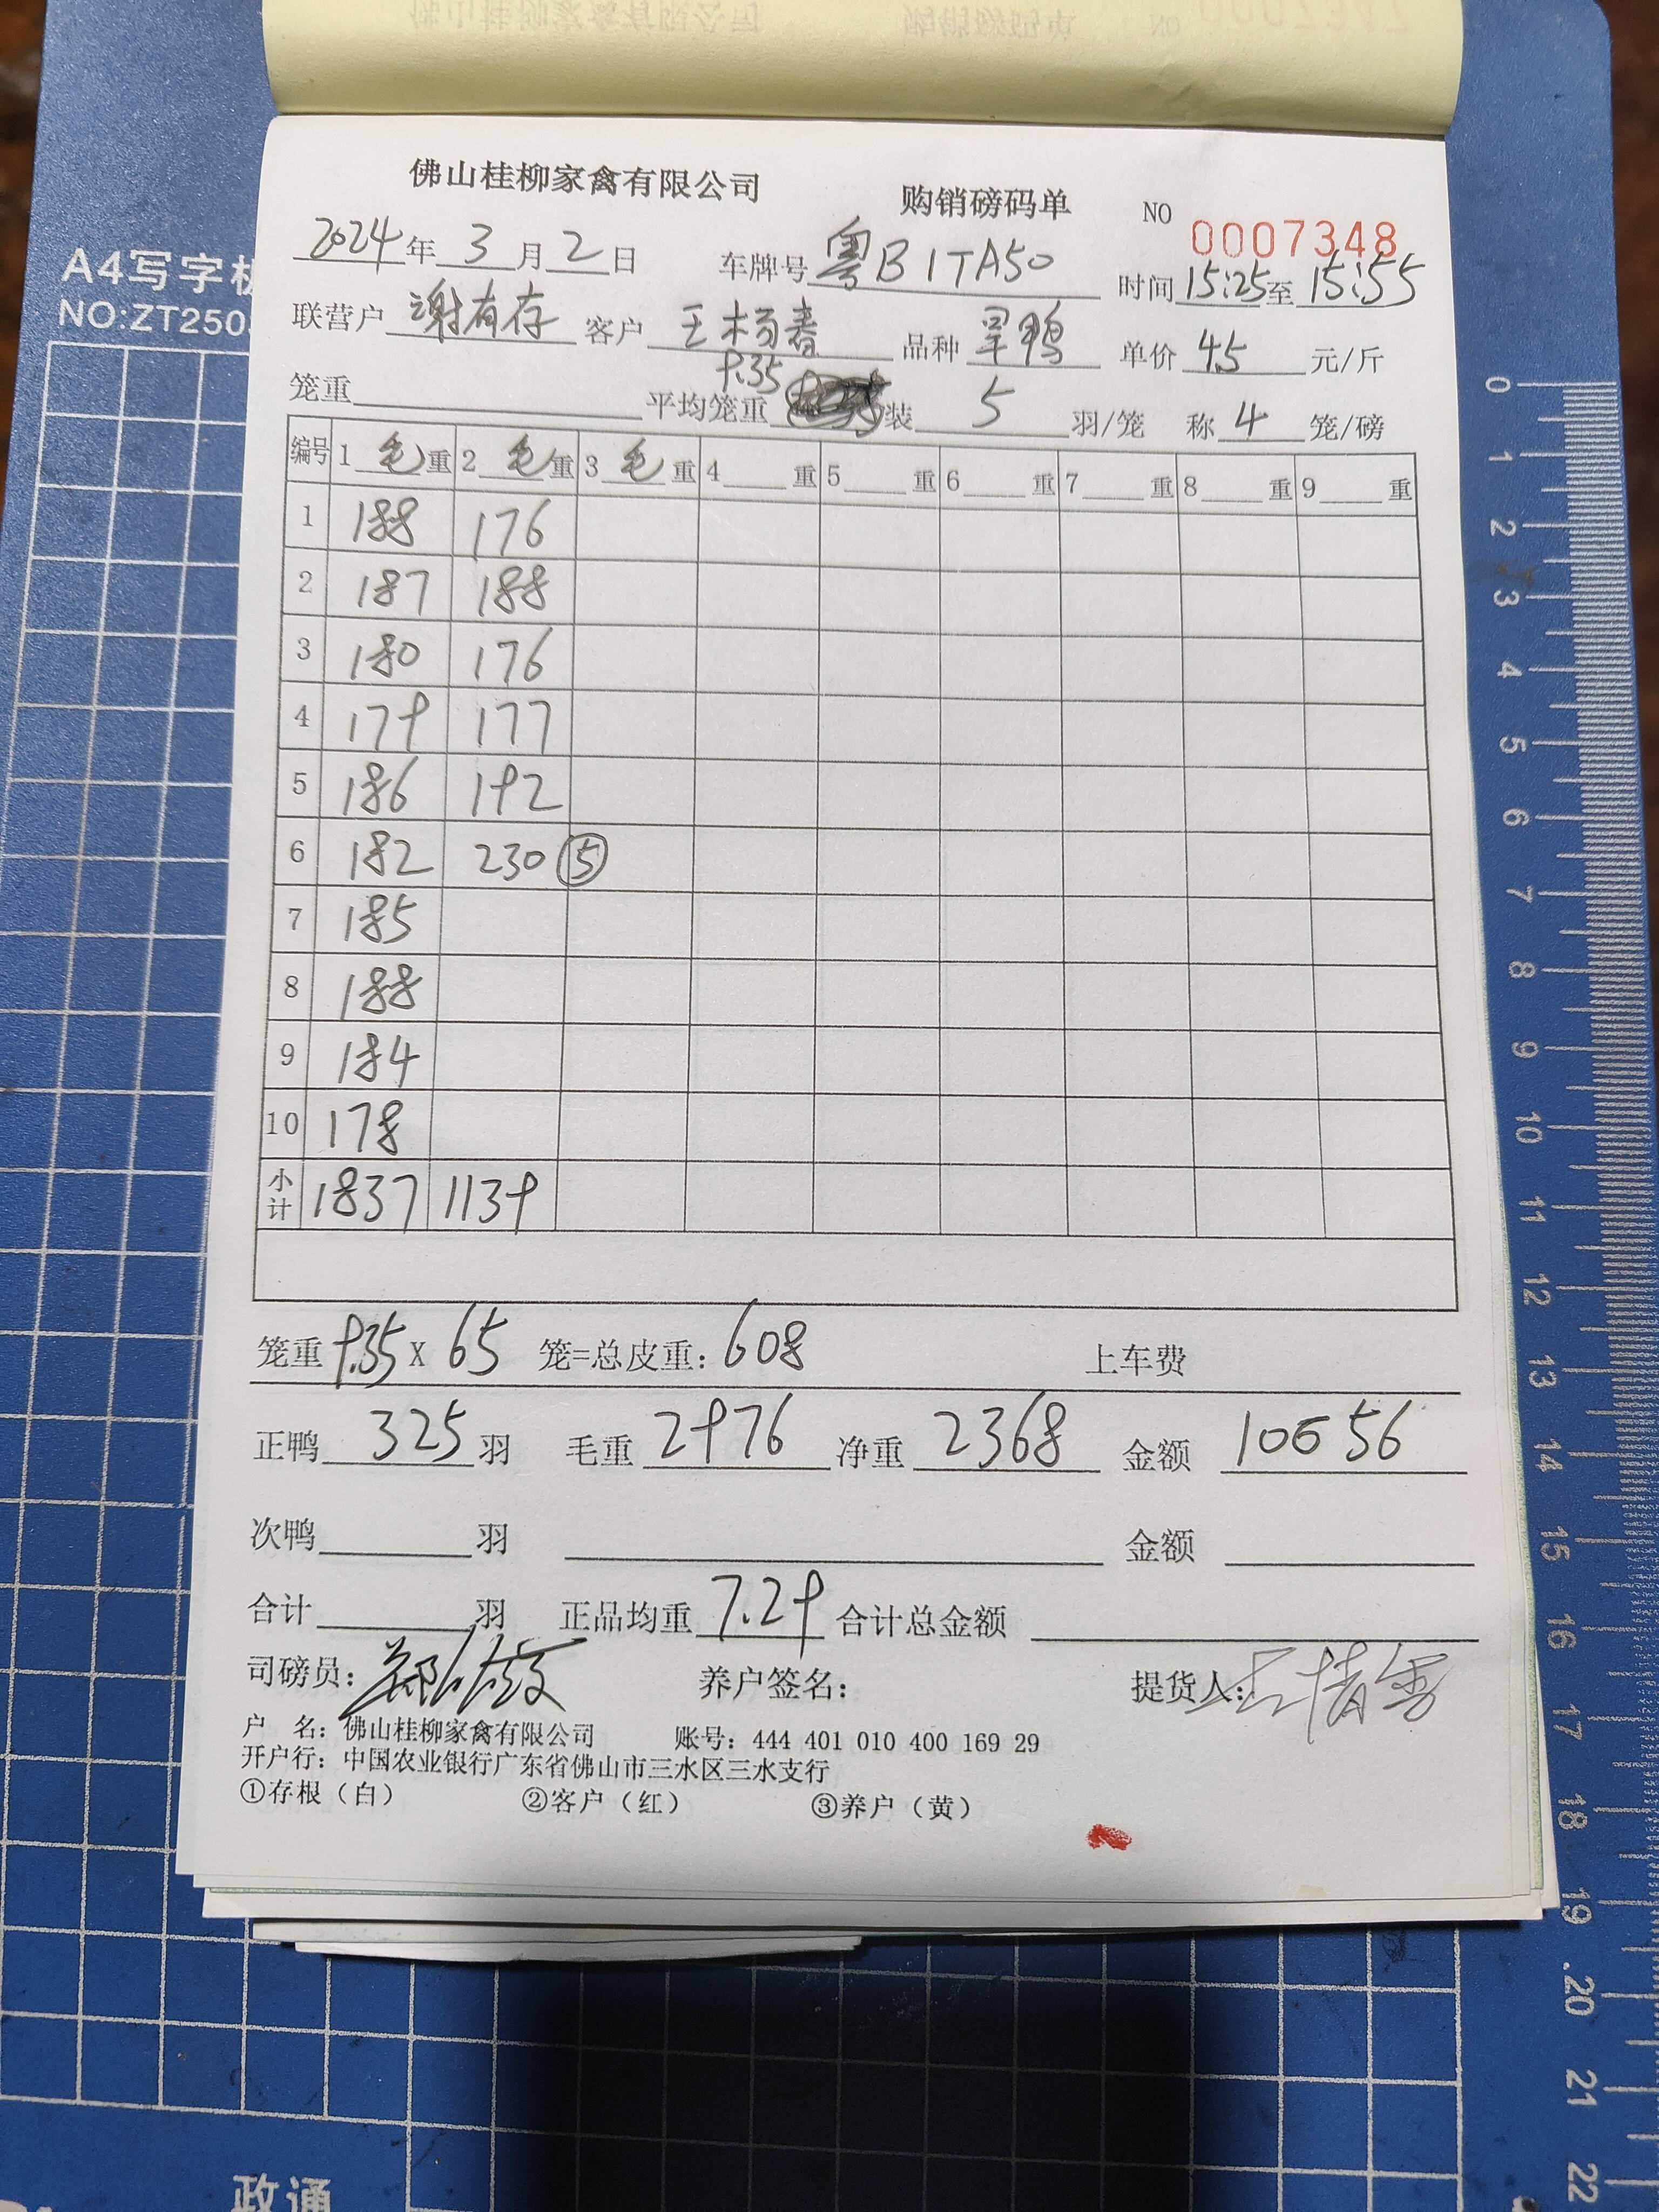 佛山桂柳家禽有限公司 购销磅码单 NO 0007348
2024年3月2日 车牌号粤B1TA50 时间15:25至15:55
A4写字板
NO:ZT250
联营户谢有存 客户王杨春 品种旱鸭 单价4.5元/斤
9.35
笼重 平均笼重 装5羽/笼 称4笼/磅
编号 1毛重 2毛重 3毛重 4重 5重 6重 7重 8重 9重
1 188 176
2 187 188
3 180 176
4 179 177
5 186 192
6 182 230 ⑤
7 185
8 188
9 184
10 178
小计 1837 1139
笼重9.35X65笼=总皮重:608 上车费
正鸭325羽 毛重2976 净重2368 金额10656
次鸭 羽 金额
合计 羽 正品均重7.29 合计总金额
司磅员: 养户签名: 提货人:
户 名:佛山桂柳家禽有限公司 账号:444 401 010 400 169 29
开户行:中国农业银行广东省佛山市三水区三水支行
①存根(白) ②客户(红) ③养户(黄)
0 1 2 3 4 5 6 7 8 9 10 11 12 13 14 15 16 17 18 19 20 21 22
政通